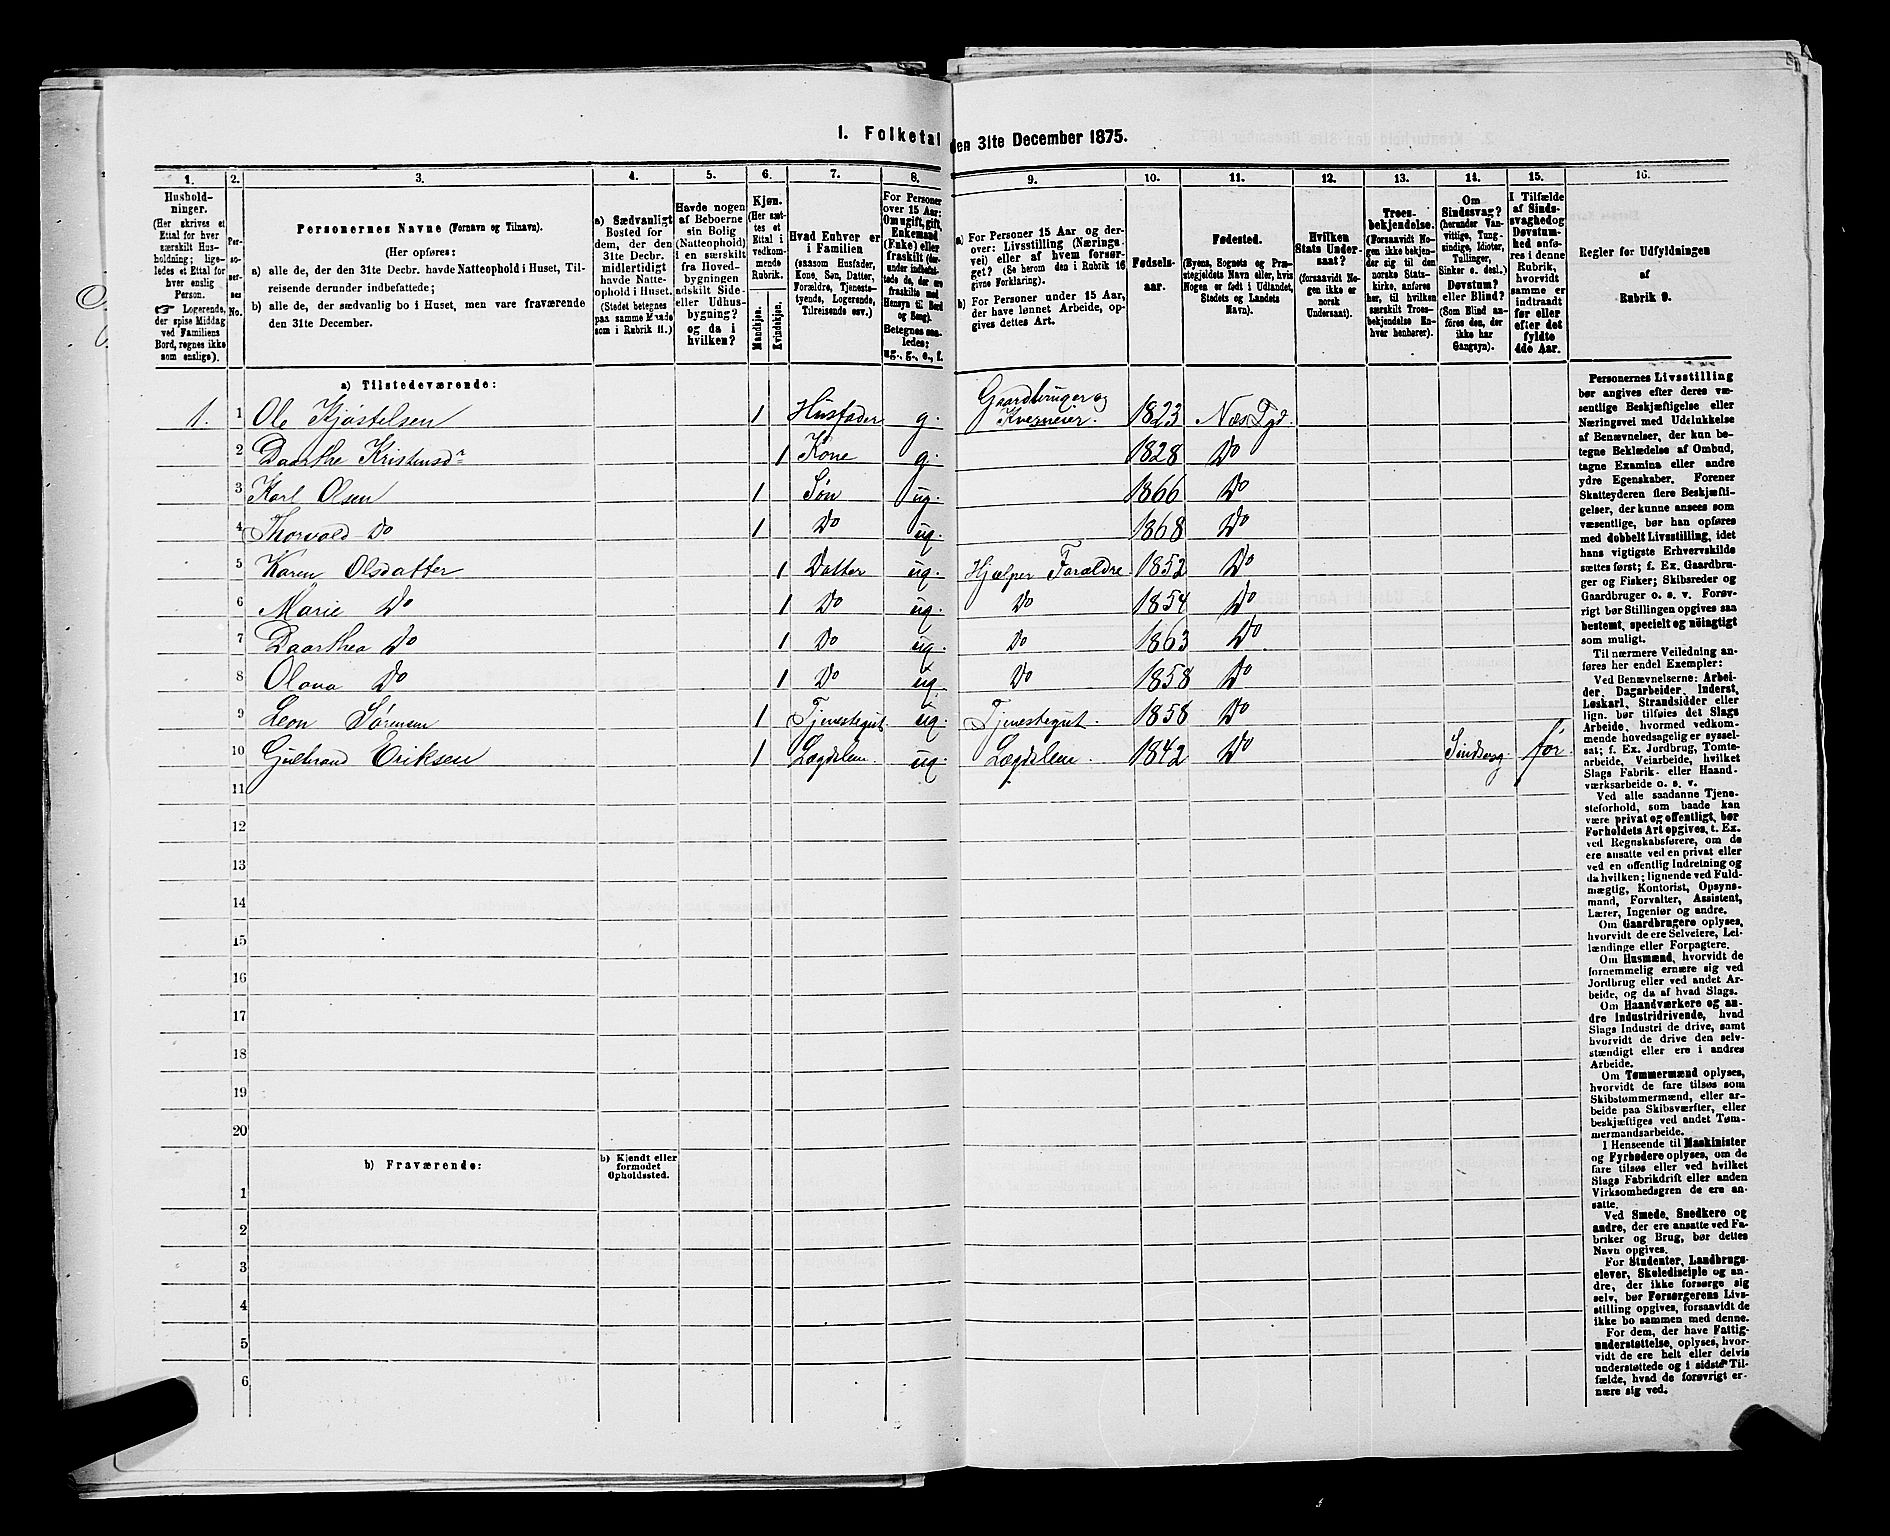 1. Folketal den 31te December 1875.
1. 2. 3. 4. 5. 6. 7. 8. 9. 10. 11. 12. 13. 14. 15. 16.
Hushold-
ninger.
(Her skrives et
Ettal for hver
særskilt Hus-
holdning; lige-
ledes et Ettal for
hver enslig
Person.
☞ Logerende,
der spise Middag
ved Familiens
Bord, regnes ikke
som enslige).
Per-
soner-
nes
No.
Personernes Navne (Fornavn og Tilnavn).
(Her opføres:
a) alle de, der den 31te Decbr. havde Natteophold i Huset, Til-
reisende derunder indbefattede;
b) alle de, der sædvanlig bo i Huset, men vare fraværende
den 31te December.
a) Sædvanligt
Bosted for
dem, der den
31te Decbr.
midlertidigt
havde Natte-
ophold i Huset.
(Stedet betegnes
paa samme Maade
som i Rubrik 11.)
Havde nogen
af Beboerne
sin Bolig
(Natteophold)
i en særskilt
fra Hoved-
bygningen
adskilt Side-
eller Udhus-
bygning?
og da i
hvilken?
Kjøn.
(Her sæt-
tes et
Ettal i
vedkom-
mende
Rubrik.
Mandkjøn.
Kvindekjøn.
Hvad Enhver er
i Familien
(saasom Husfader,
Kone, Søn, Datter,
Forældre, Tjeneste-
tyende, Logerende,
Tilreisende osv.)
For Personer
over 15 Aar:
Om ugift, gift,
Enkemand
(Enke) eller
fraskilt (der-
under indbefat-
tede de, der ere
fraskilte med
Hensyn til Bord
og Seng).
Betegnes saa-
ledes:
ug., g., e., f.
a) For Personer 15 Aar og der-
over: Livsstilling (Nærings-
vei) eller af hvem forsør-
get? (Se herom den i Rubrik 16
givne Forklaring).
b) For Personer under 15 Aar,
der have lønnet Arbeide, op-
gives dettes Art.
Fødsels-
aar.
Fødested.
(Byens, Sognets og Præ-
stegjeldets Navn eller, hvis
Nogen er født i Udlandet,
Stedets og Landets
Navn).
Hvilken
Stats Under-
saat?
(forsaavidt No-
gen ikke er
norsk
Undersaat).
Troes-
bekjendelse.
(Forsaavidt No-
gen ikke bekjen-
der sig til den
norske Stats-
kirke, anføres
her, til hvilken
særskilt Troes-
bekjendelse En-
hver henhører).
Om
Sindssvag?
(herunder Van-
vittige, Tung-
sindige, Idioter,
Tullinger,
Sinker o. desl.)
Døvstum?
eller Blind?
(Som Blind an-
føres den, der
ikke har
Gangsyn).
I Tilfælde
af Sinds-
svaghed og
Døvstum-
hed anfø-
res i denne
Rubrik,
hvorvidt
samme er
indtraadt
før eller
efter det
fyldte
4de Aar.
Regler for Udfyldningen
af
Rubrik 9.
a) Tilstedeværende:
1. 1 Ole Kjøstelsen 1 Husfader g. Gaardbruger og Kverneier. 1823 Næs Pgd.
2 Daarthe Kristensdr 1 Kone g. 1828 Do
3 Karl Olsen 1 Søn ug. 1866 Do
4 Thorvald Do 1 Do ug. 1868 Do
5 Karen Olsdatter 1 Datter ug. Hjælper Forældre 1852 Do
6 Marie Do 1 Do ug. Do 1854 Do
7 Daarthea Do 1 Do ug. Do 1863 Do
8 Olava Do 1 Do ug. Do 1858 Do
9 Leon Sørensen 1 Tjenestegut ug. Tjenestegut. 1858 Do
10 Gulbrand Eriksen 1 Lægdslem. ug. Lægdslem. 1842 Do Sindsvg. før.
11
12
13
14
15
16
17
18
19
20
b) Fraværende:
b) Kjendt eller
formodet
Opholdssted.
1
2
3
4
5
6
Personernes Livsstilling
bør angives efter deres væ-
sentlige Beskjæftigelse eller
Næringsvei med Udelukkelse
af Benævnelser, der kun be-
tegne Beklædelse af Ombud,
tagne Examina eller andre
ydre Egenskaber. Forener
Skatteyderen flere Beskjæfti-
gelser, der kunne ansees som
væsentlige, bør han opføres
med dobbelt Livsstilling, idet
hans vigtigste Erhvervskilde
sættes først; f. Ex. Gaardbru-
ger og Fisker; Skibsreder og
Gaardbruger o. s. v. Forøv-
rigt bør Stillingen opgives saa
bestemt, specielt og nøiagtigt
som muligt.
Til nærmere Veiledning an-
føres her endel Exempler:
Ved Benævnelserne: Arbei-
der, Dagarbeider, Inderst,
Løskarl, Strandsidder eller
lign. bør tilføies det Slags
Arbeide, hvormed vedkom-
mende hovedsagelig er syssel-
sat; f. Ex. Jordbrug, Tomte-
arbeide, Veiarbeide, hvilket
Slags Fabrik- eller Haand-
værksarbeide o. s. v.
Ved alle saadanne Tjene-
steforhold, som baade kan
være privat og offentligt, bør
Forholdets Art opgives, t. Ex.
ved Regnskabsførere, om de
ere ansatte ved en privat eller
ved en offentlig Indretning og
da hvilken; lignende ved Fuld-
mægtig, Kontorist, Opsyns-
mand, Forvalter, Assistent,
Lærer, Ingeniør og andre.
Om Gaardbrugere oplyses,
hvorvidt de ere Selveiere, Lei-
lændinge eller Forpagtere.
Om Husmænd, hvorvidt de
fornemmelig ernære sig ved
Jordbrug eller ved andet Ar-
beide, og da af hvad Slags.
Om Haandværkere og an-
dre Industridrivende, hvad
Slags Industri de drive, samt
hvorvidt de drive den selv-
stændigt eller ere i andres
Arbeide.
Om Tømmermænd oplyses,
hvorvidt de fare tilsøs som
Skibstømmermænd, eller ar-
beide paa Skibsværfter, eller
beskjæftiges ved andet Tøm-
mermandsarbeide.
I Henseende til Maskinister
og Fyrbødere oplyses, om de
fare tilsøs eller ved hvilket
Slags Fabrikdrift eller anden
Virksomhedsgren de ere an-
satte.
Ved Smede, Snedkere og
andre, der ere ansatte ved Fa-
briker og Brug, bør dettes
Navn opgives.
For Studenter, Landbrugs-
elever, Skoledisciple og an-
dre, der ikke forsørge sig
selv, bør Forsørgerens Livs-
stilling opgives, forsaavidt de
ikke bo sammen med denne.
For dem, der have Fattig-
understøttelse, oplyses, hvor-
vidt de ere helt eller delvis
understøttede og i sidste Til-
fælde, hvad de forøvrigt er-
nære sig ved.